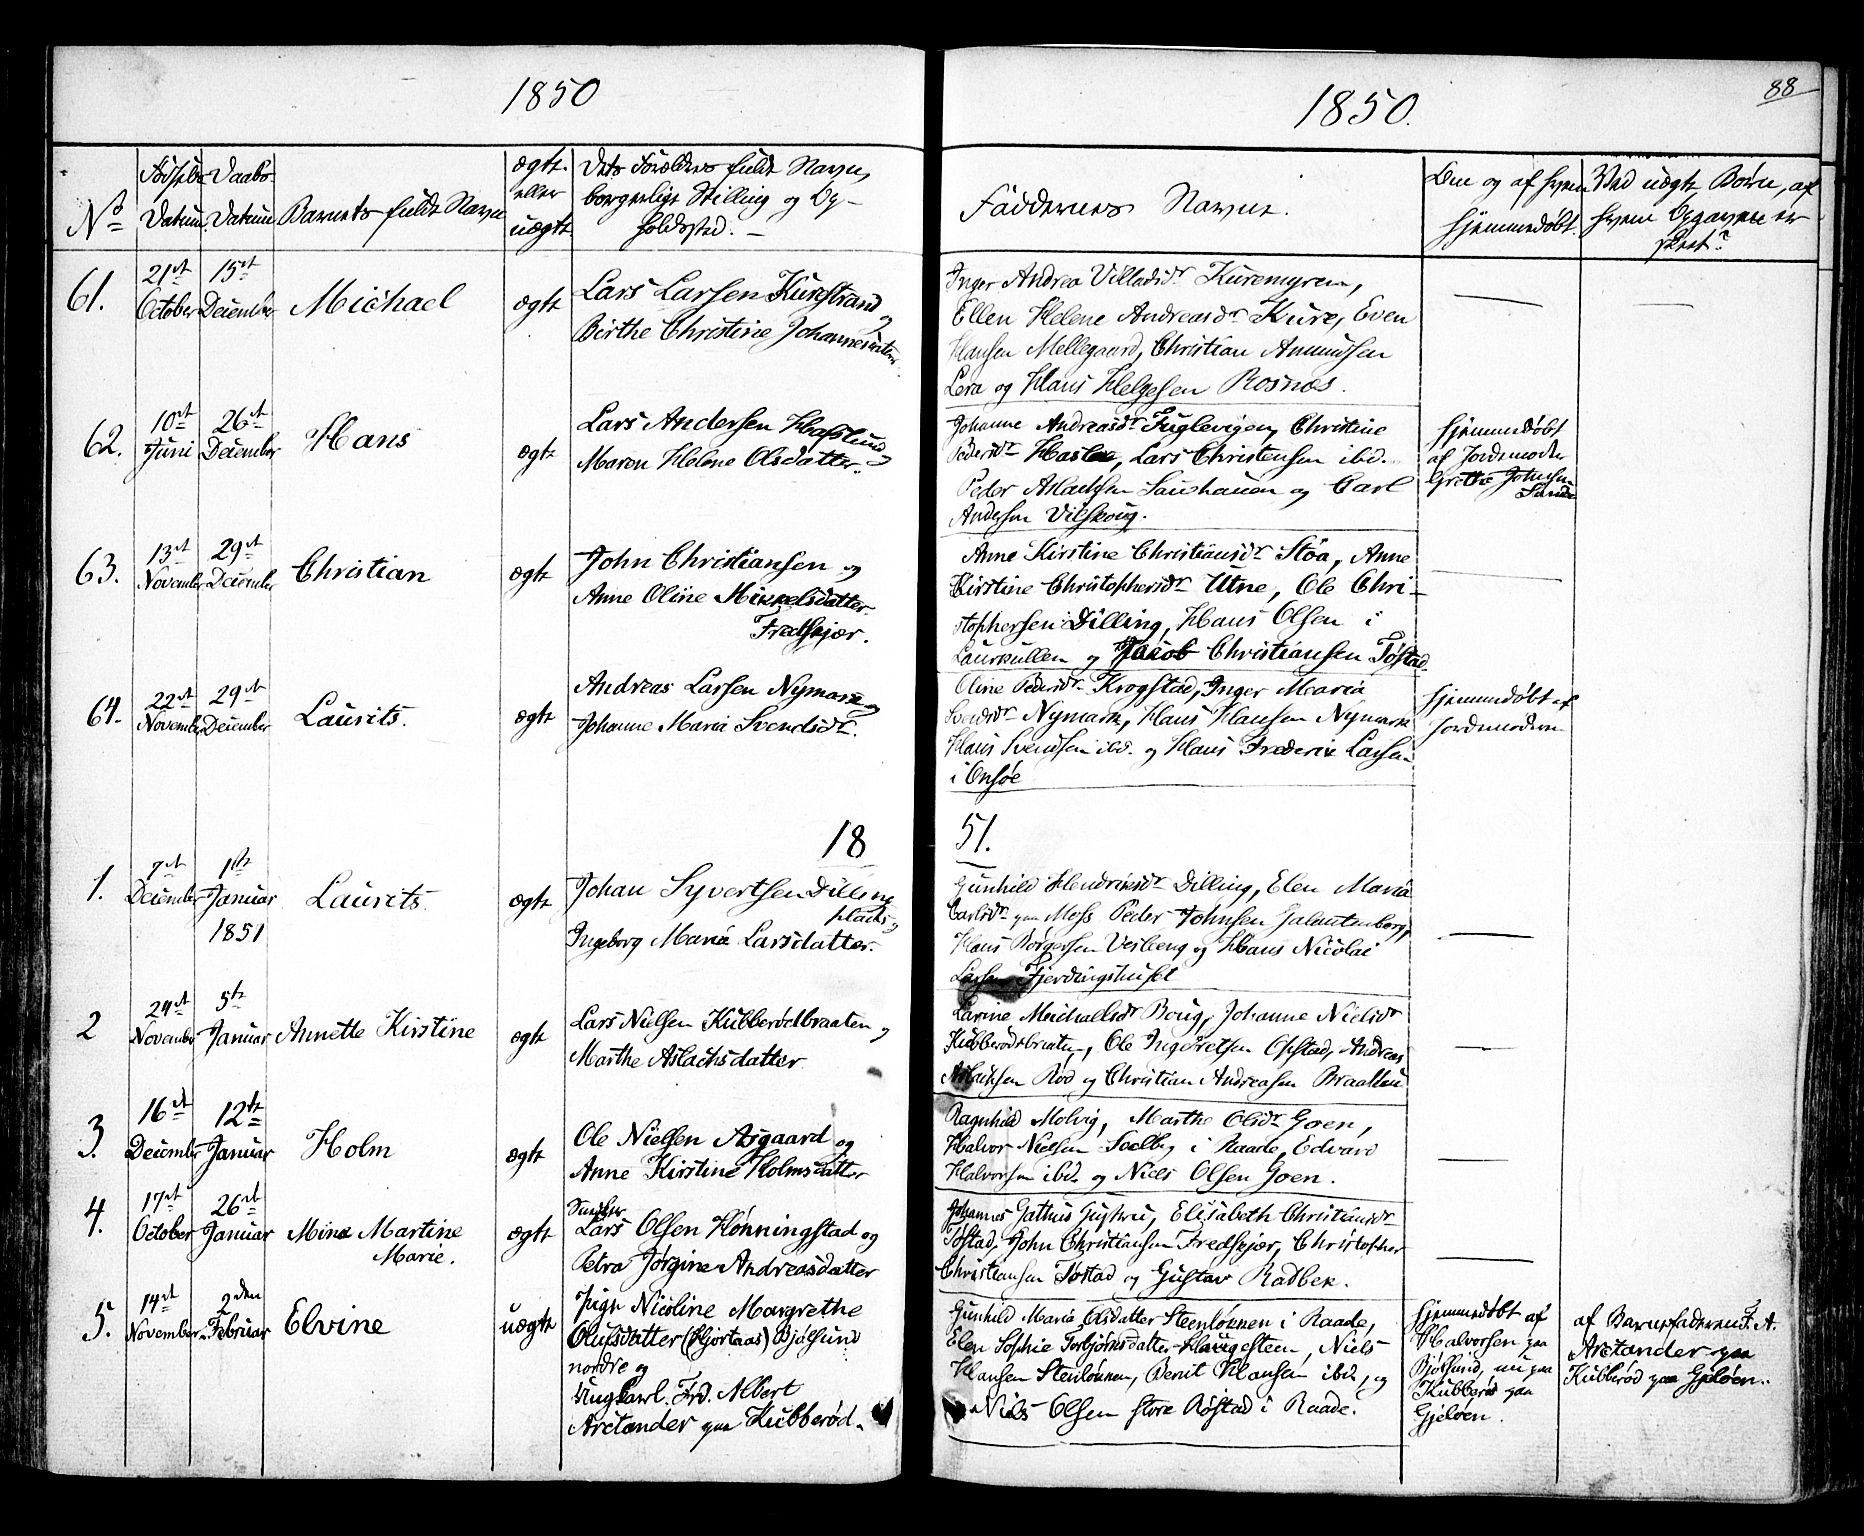 1850
No
Fødsels-
Datum.
Daabs-
Datum
Barnets fulde Navn
ægte
eller
uægte
Dets Forældres fulde Navn,
borgerlige Stilling og Op-
holdssted. –
61.
21de
October
15de
December
Michael
ægte
Lars Larsen Kurestrand
og
Birthe Christine Johannesdatter
62.
10de
Juni
26de
December
Hans
ægte
Lars Andersen Haslund
og
Maren Helene Olsdatter.
63.
13de
November
29de
December
Christian
ægte
John Christiansen og
Anne Oline Mikkelsdatter
Fredskjær.
64.
22de
November
29de
December
Laurits.
ægte
Andreas Larsen Nymark og
Johanne Maria Svendsdr.
18
1.
7de
December
1ste
Januar
1851
Laurits.
ægte
Johan Syvertsen Dilling
plads og
Ingeborg Maria Larsdatter.
2
24de
November
5te
Januar
Annette Kirstine
ægte
Lars Nielsen Kubberødbraaten og
Marthe Aslachsdatter
3.
16de
December
12te
Januar
Holm
ægte
Ole Nielsen Asgaard og
Anne Kirstine Holmsdatter
4.
17de
October
26de
Januar
Mina Martine
Marie.
ægte
Lars Olsen Hønningstad og
Petra Jørgine Andreasdatter
5.
14de
November
2den
Februar
Elvine
uægte
Pige Nicoline Margrethe
Olufsdatter (Hjortaas) Bjølsund
nordre og
Ungkarl. Frd. Albert
Arctander paa Kubberød.
1850.
88
Faddernes Navne.
Om og af hvem
hjemmedøbt.
Ved uægte Børn, af
hvem Opgaven er
skeet?
Inger Andrea Villadsdr Kuremyren,
Ellen Helene Andreasdr Kure, Even
Hansen Mellegaard, Christian Amundsen
Lera og Hans Helgesen Rosnæs.
Johanne Andreasdr Fuglevigen, Christine
Pedersdr Hasle, Lars Christensen ibd.
Peder Aslachsen Sauehauen og Carl
Andersen Vilskoug.
Hjemmedøbt
af Jordemoder
Grethe Johnsen
Sande
Anne Kirstine Christiansdr Støa, Anne
Kirstine Christophersdr Utne, Ole Chri-
stophersen Dilling, Hans Olsen i
Laurkullen og Jacob Christiansen Tøstad.
Oline Pedersdr Krogstad, Inger Maria
Svendsdr Nymark, Hans Hansen Nymark
Hans Svendsen ibd. og Hans Frederik Larsen
i Onsøe
Hjemmedøbt af
Jordemoderen
51.
Gunhild Hendriksdr Dilling, Elen Maria
Carlsdr paa Moss Peder Johnsen Galautenborg,
Hans Børgersen Vesleeng og Hans Nicolai
Larsen Fjerdingshuset
Larine Michaelsdr Boug, Johanne Nielsdr
Kubberødbraaten, Ole Ingebretsen Opstad, Andreas
Aslachsen Rød og Christian Andreasen Braatten
Ragnhild Molvig, Marthe Olsdr Goen,
Halvor Nielsen Soelby i Raade, Edvard
Halvorsen ibd. og Niels Olsen Goen.
Johannes Elisabeth Christiansdr
Tøstad, John Christiansen Fredskjær, Christopher
Christiansen Tøstad og Gustav Radbek.
Gunhild Maria Olsdatter Steenlønnen i Raade,
Elen Sophie Torbjørnsdatter Haugesteen, Niels
Hansen Steenlønnen, Bernt Hansen ibd., og
Niels Olsen store Røstad i Raade.
Hjemmedøbt af
Halvorsen paa
Bjølsund, nu paa
Kubberød paa
Gjeløen.
af Barnefaderen F. A.
Arctander paa
Kubberød paa Gjeløen.